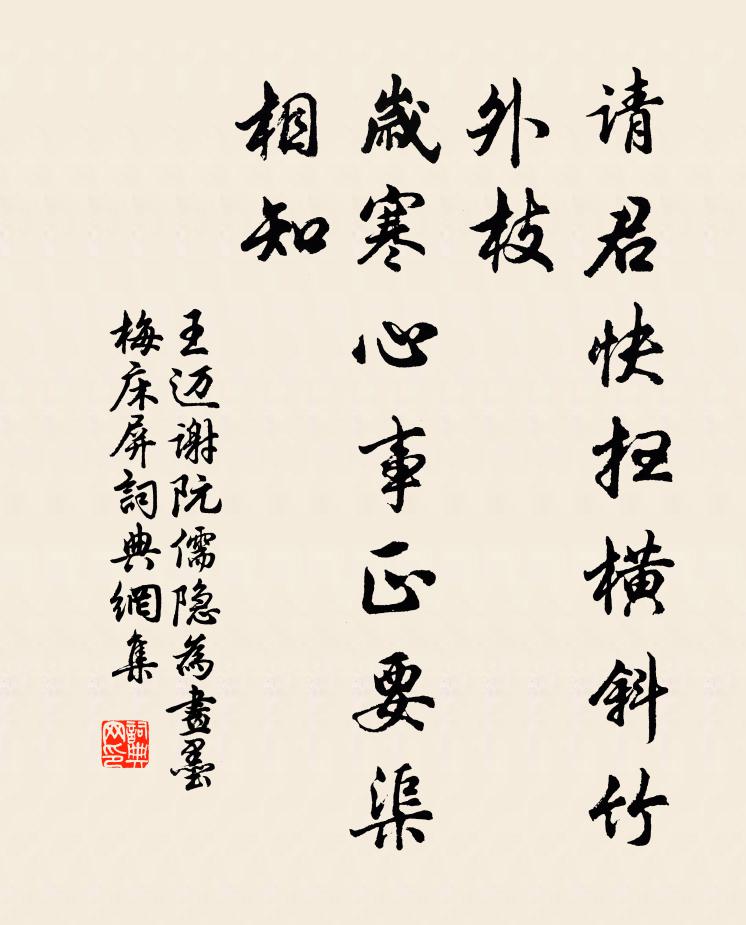 请君快扫横斜竹
外枝
岁寒心事正要渠
相知
王迈谢阮儒隐为畫墨
梅床屏詞典網集
詞典
网印